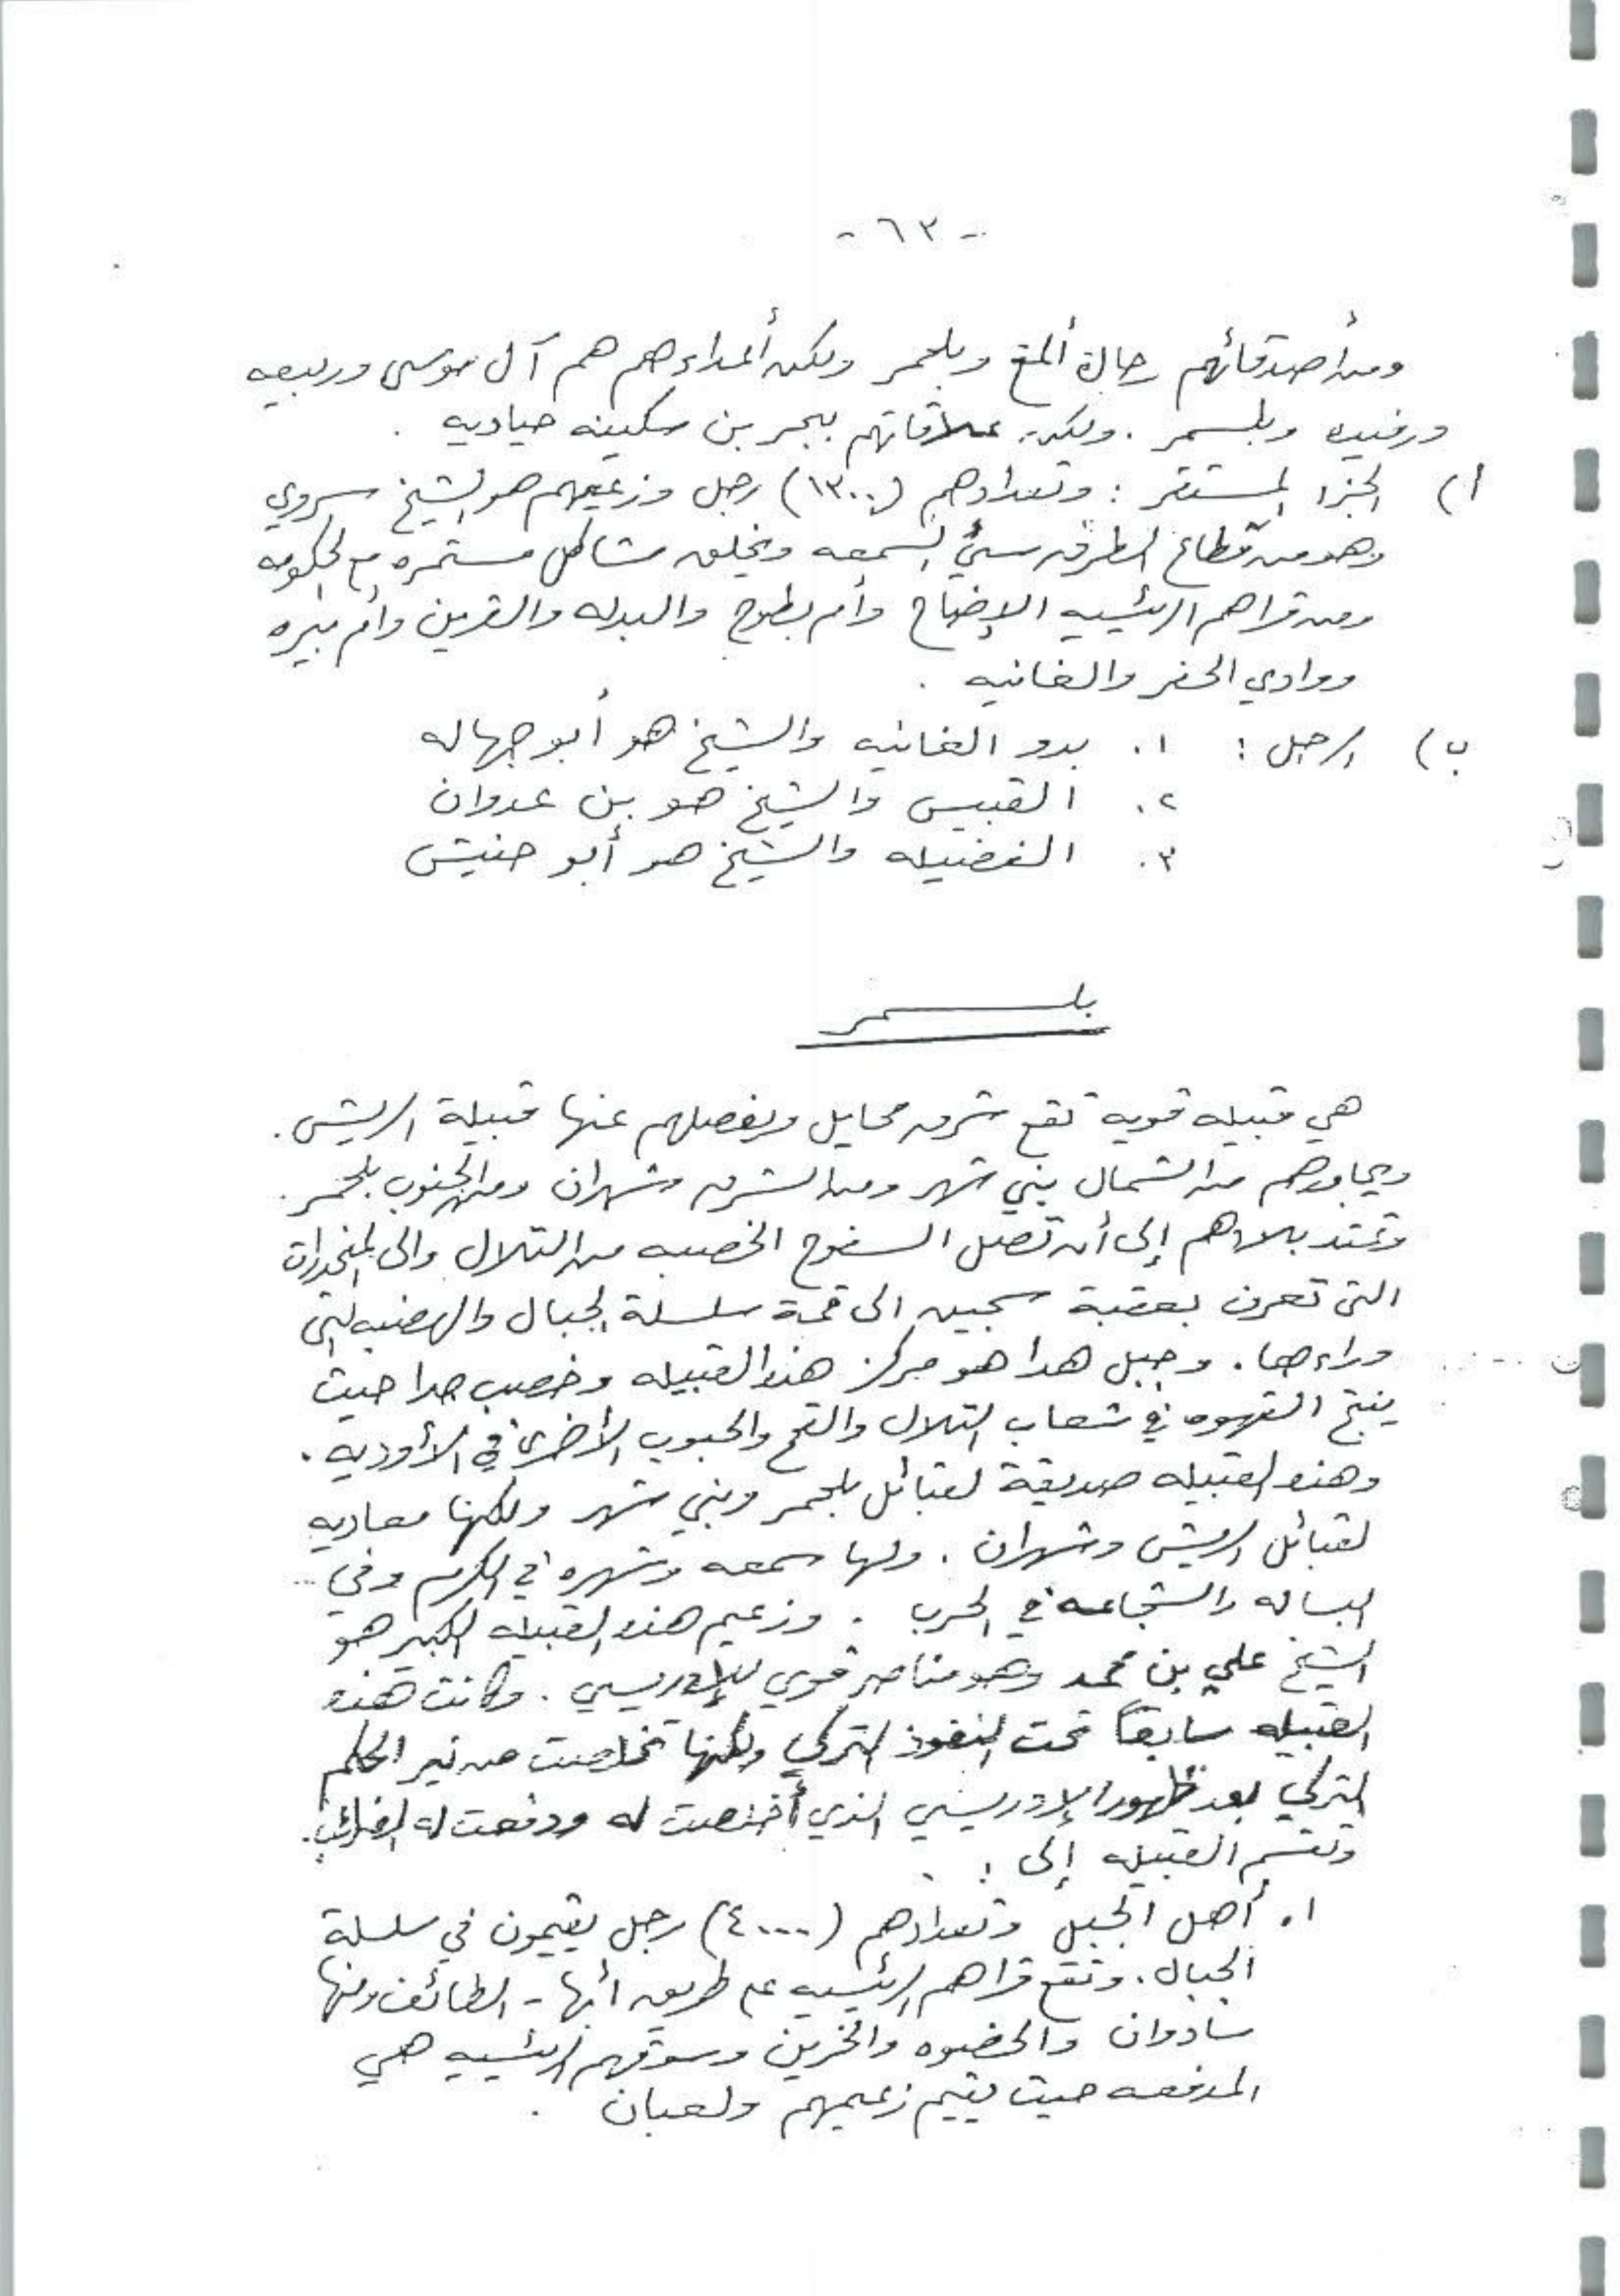 - ٦٣ -
ومن أصدقائهم رجال ألمع وبلحمر ولكن أعداءهم هم آل موسى وربيعه
ورفيده وبلسمر . ولكن علاقاتهم ببحر بن سكينه حياديه .
أ) الجزء المستقر : وتعدادهم (١٣٠٠) رجل وزعيمهم هو الشيخ سروي
وهو من قطاع الطرق سيئ السمعه ويخلق مشاكل مستمره مع الحكومه
ومن قراهم الرئيسيه الإضباح وأم بطوح والبدله والقرين وأم نيره
ووادي الحفر والغانيه .
ب) الرحل : ١. بدو الغانيه والشيخ هو أبو جهاله
٢. القبيس والشيخ هو بن عدوان
٣. الفضيله والشيخ هو أبو حنيش
بلسمر
هي قبيله قويه تقع شرق محايل ويفصلهم عنها قبيلة الريش .
ويجاورهم من الشمال بني شهر ومن الشرق شهران ومن الجنوب بلحمر .
وتمتد بلادهم إلى أن تصل السفوح الخصبه من التلال والى المنحدرات
التى تعرف بعقبة سجين الى قمة سلسلة الجبال والهضبه التى
وراءها . وجبل هدا هو مركز هذه القبيله وخصب جدا حيث
ينتج القهوه في شعاب التلال والقمح والحبوب الأخرى في الأوديه .
وهذه القبيله صديقة لقبائل بلحمر وبني شهر ولكنها معاديه
لقبائل الريش وشهران . ولها سمعه وشهره في الكرم وفي
البساله والشجاعه في الحرب . وزعيم هذه القبيله الكبير هو
الشيخ علي بن محمد وهو مناصر قوي للإدريسي . وكانت هذه
القبيله سابقاً تحت النفوذ التركي ولكنها تخلصت من نير الحكم
التركي بعد ظهور الإدريسي الذي أخلصت له ودفعت له الضرائب .
وتقسم القبيله إلى :
١. أهل الجبل وتعدادهم (٤٠٠٠) رجل يقيمون في سلسلة
الجبال . وتقع قراهم الرئيسيه على طريق أبها - الطائف ومنها
سادوان والحضوه والخرين وسوقهم الرئيسيه هي
المدفعه حيث يقيم زعيمهم ولعبان .